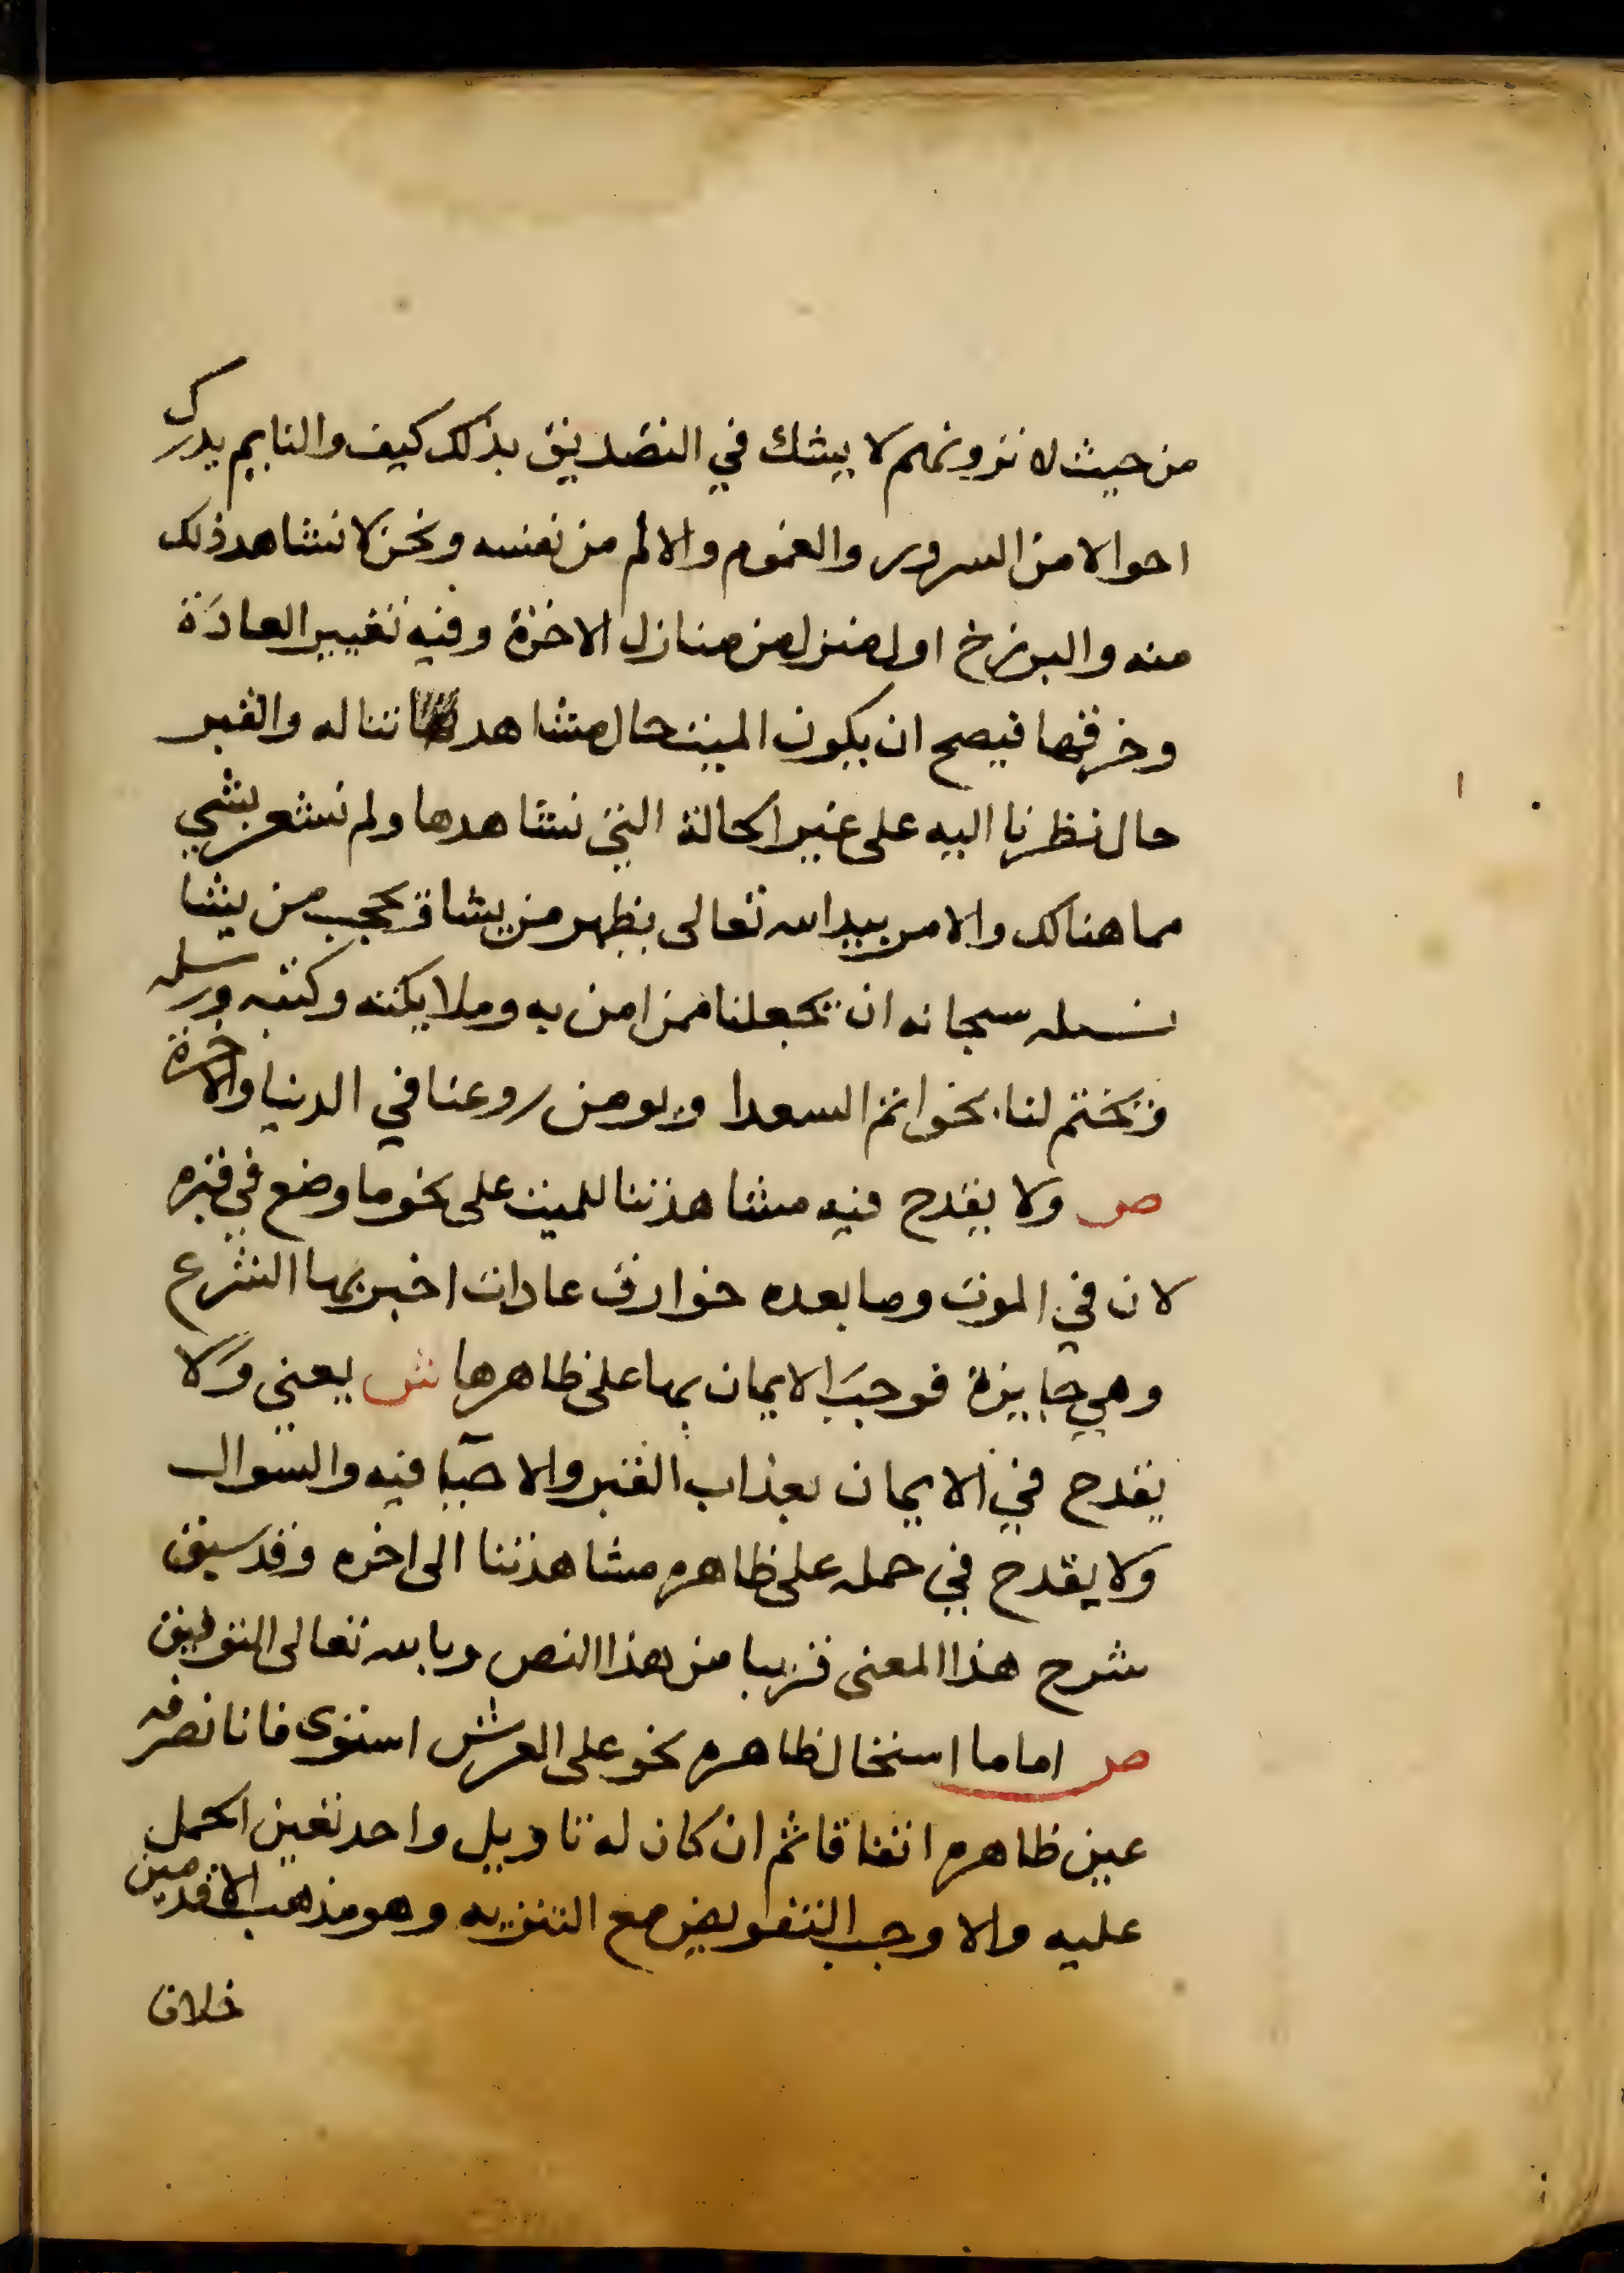 من حيث لا ترونهم لا يشك في التصديق بذلك كيف والنايم يدرك
احوالا من السرور والغموم والالم من نفسه ونحن لا نشاهد ذلك
منه والبرزخ اول منزل من منازل الاخرة وفيه تغيير العادة
وخرقها فيصح ان يكون الميت حال مشاهد تناله والقبر
حال نظرنا اليه على غير الحالة التي نشاهدها ولم نشعر بشي
مما هنالك والامر بيد الله تعالى يظهر من يشا ويحجب من يشا
نسله سبحانه ان يجعلنا ممن امن به وملايكته وكتبه ورسله
ويختم لنا بخواتم السعدا ويومن روعنا في الدنيا والاخرة
ص ولا يقدح فيه مشاهدتنا للميت على نحو ما وضع في قبره
لان في الموت وما بعده خوارق عادات اخبر بها الشرع
وهي جايزة فوجب الايمان بها على ظاهرها ش يعني ولا
يقدح في الايمان بعذاب القبر والاحيا فيه والسوال
ولا يقدح في حمله على ظاهره مشاهدتنا الى اخره وقد سبق
شرح هذا المعنى قريبا من هذا النص وبالله تعالى التوفيق
ص اما ما استحال ظاهره نحو على العرش استوى فانا نصرفه
عين ظاهره اتفاقا ثم ان كان له تاويل واحد تعين الحمل
عليه والا وجب التفويض مع التنزيه وهو مذهب الاقدمين
خلاف